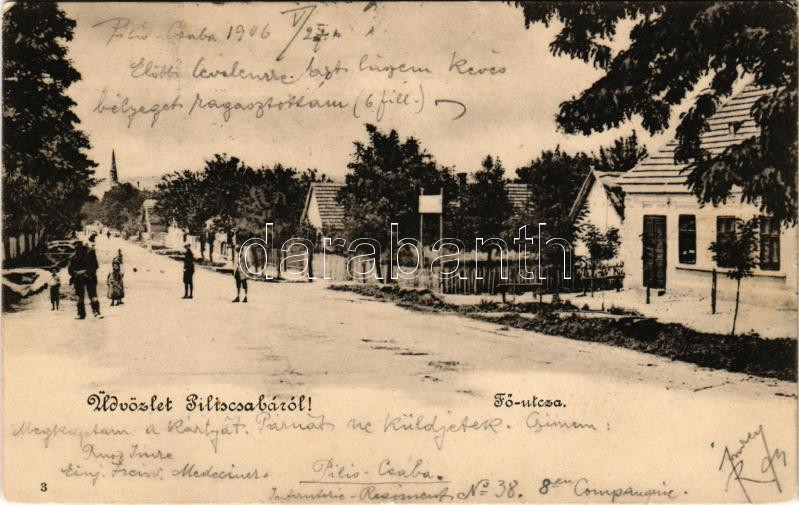 Pilis-Csaba 1906 V/27.
Előtti levelemre azt hiszem kevés
bélyeget ragasztottam (6 fill.)
darabanth.com
Üdvözlet Piliscsabáról!
Fő-utcza.
Megkaptam a kártyát. Párnát ne küldjetek. Címem:
Imre
Einj. Freiw. Mediciner.
Pilis-Csaba.
Infanterie-Regiment No 38. 8en Compagnie.
3